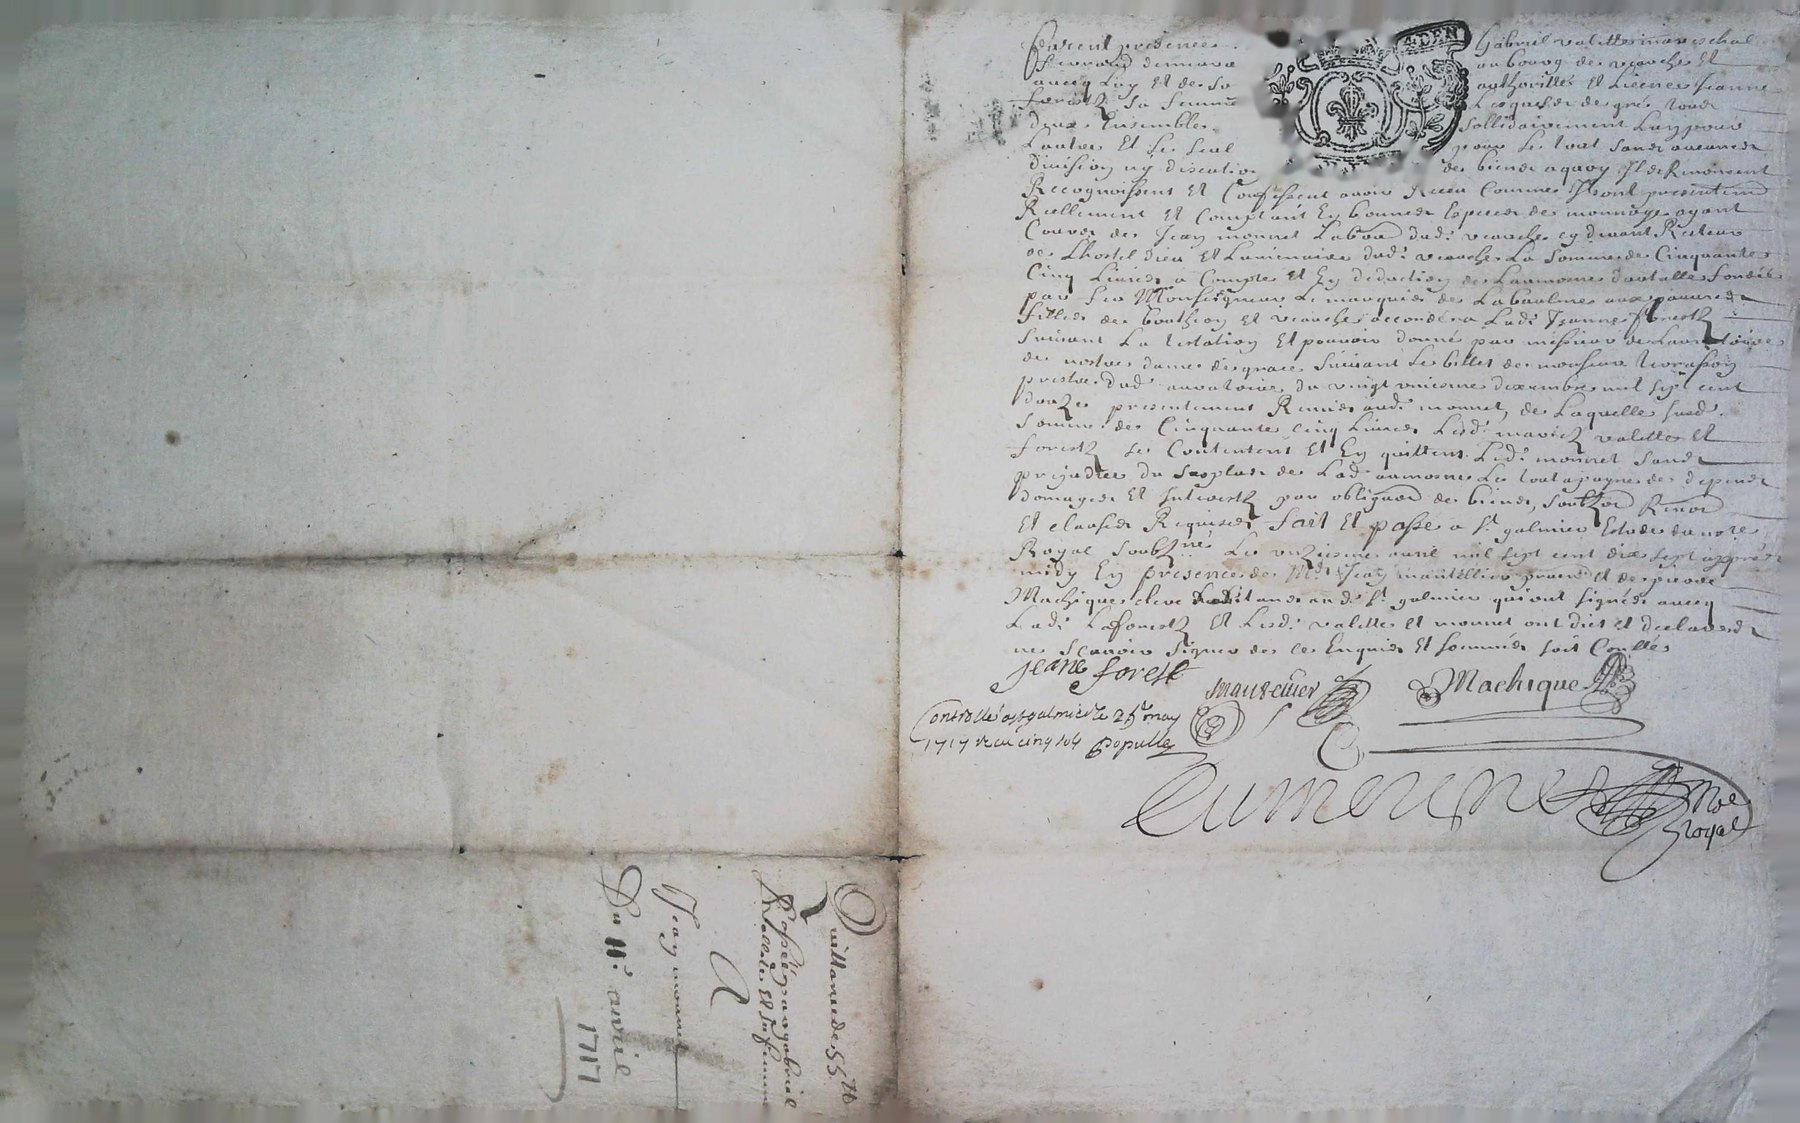 furent presents Gabriel valette mareschal
au bourg de veauche Et
avecq Luy Et de Sa authorittés Et Licence Jeanne
forestz Sa femme Lesquelz de gré tous
deux Ensembles sollidairement Lun pour
Lautre Et le seul pour le tout sans aucune
division ny discution de biens a quoy Ils Renoncent
Recognoissent Et Confessent avoir Receu Comme presentem
Reellement Et Comptant En bonnes Especes de monnoye ayant
Cours de Jean monnet Labou dud: veauche cy devant Recteur
de Lhostel dieu Et dud: veauche La Somme de Cinquante
Cinq Livres a Compte Et En deduction de Laumosne dotalle fondée
par feu Monseigneur Le marquis de La baulme aux pauvres
filles de bouthéon Et veauche accordé a Lad: Jeanne forestz
suivant La Et pouvoir donné par messieurs de Lauratoire
de nostre dame de grace suivant Le billet de monsieur terrasson
prestre dud: auratoire du vingt unieme dexembre mil sept cent
douze presentement Remis aud: monnet, de Laquelle susd:
Somme de Cinquante cinq Livres Lesd: mariez valette Et
forestz se Contentent Et En quittent Led: monnet sans
prejudice du surplus de Lad: aumosne Le tout a payne de depens
domages Et Interestz par obligaon de biens, soubzon Renon
Et clauses Requises fait Et passé a St galmier Estude du nore
Royal soubzné Le unzieme avril mil sept cent dix sept appres
midy En presence de Me Jean mautellier Et de pierre
Machique clerc habitans aud: St galmier qui ont signés avecq
Lad: Laforestz Et Lesd: valette Et monnet ont dict et declaré
ne scavoir signer de ce Enquis Et sommés soit Conllé
jeane forest
mautellier
Machique
Controllé a st galmier le 25e may
1717 receu cinq sols
nore
royal
Quittance de 55 tt
Passée par gabriel
valette Et sa femme
A
Jean monnet
Du 11e avril
1717